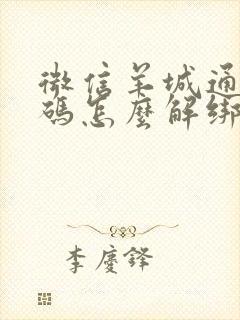 微信羊城通
碼怎麼解綁
李慶鋒